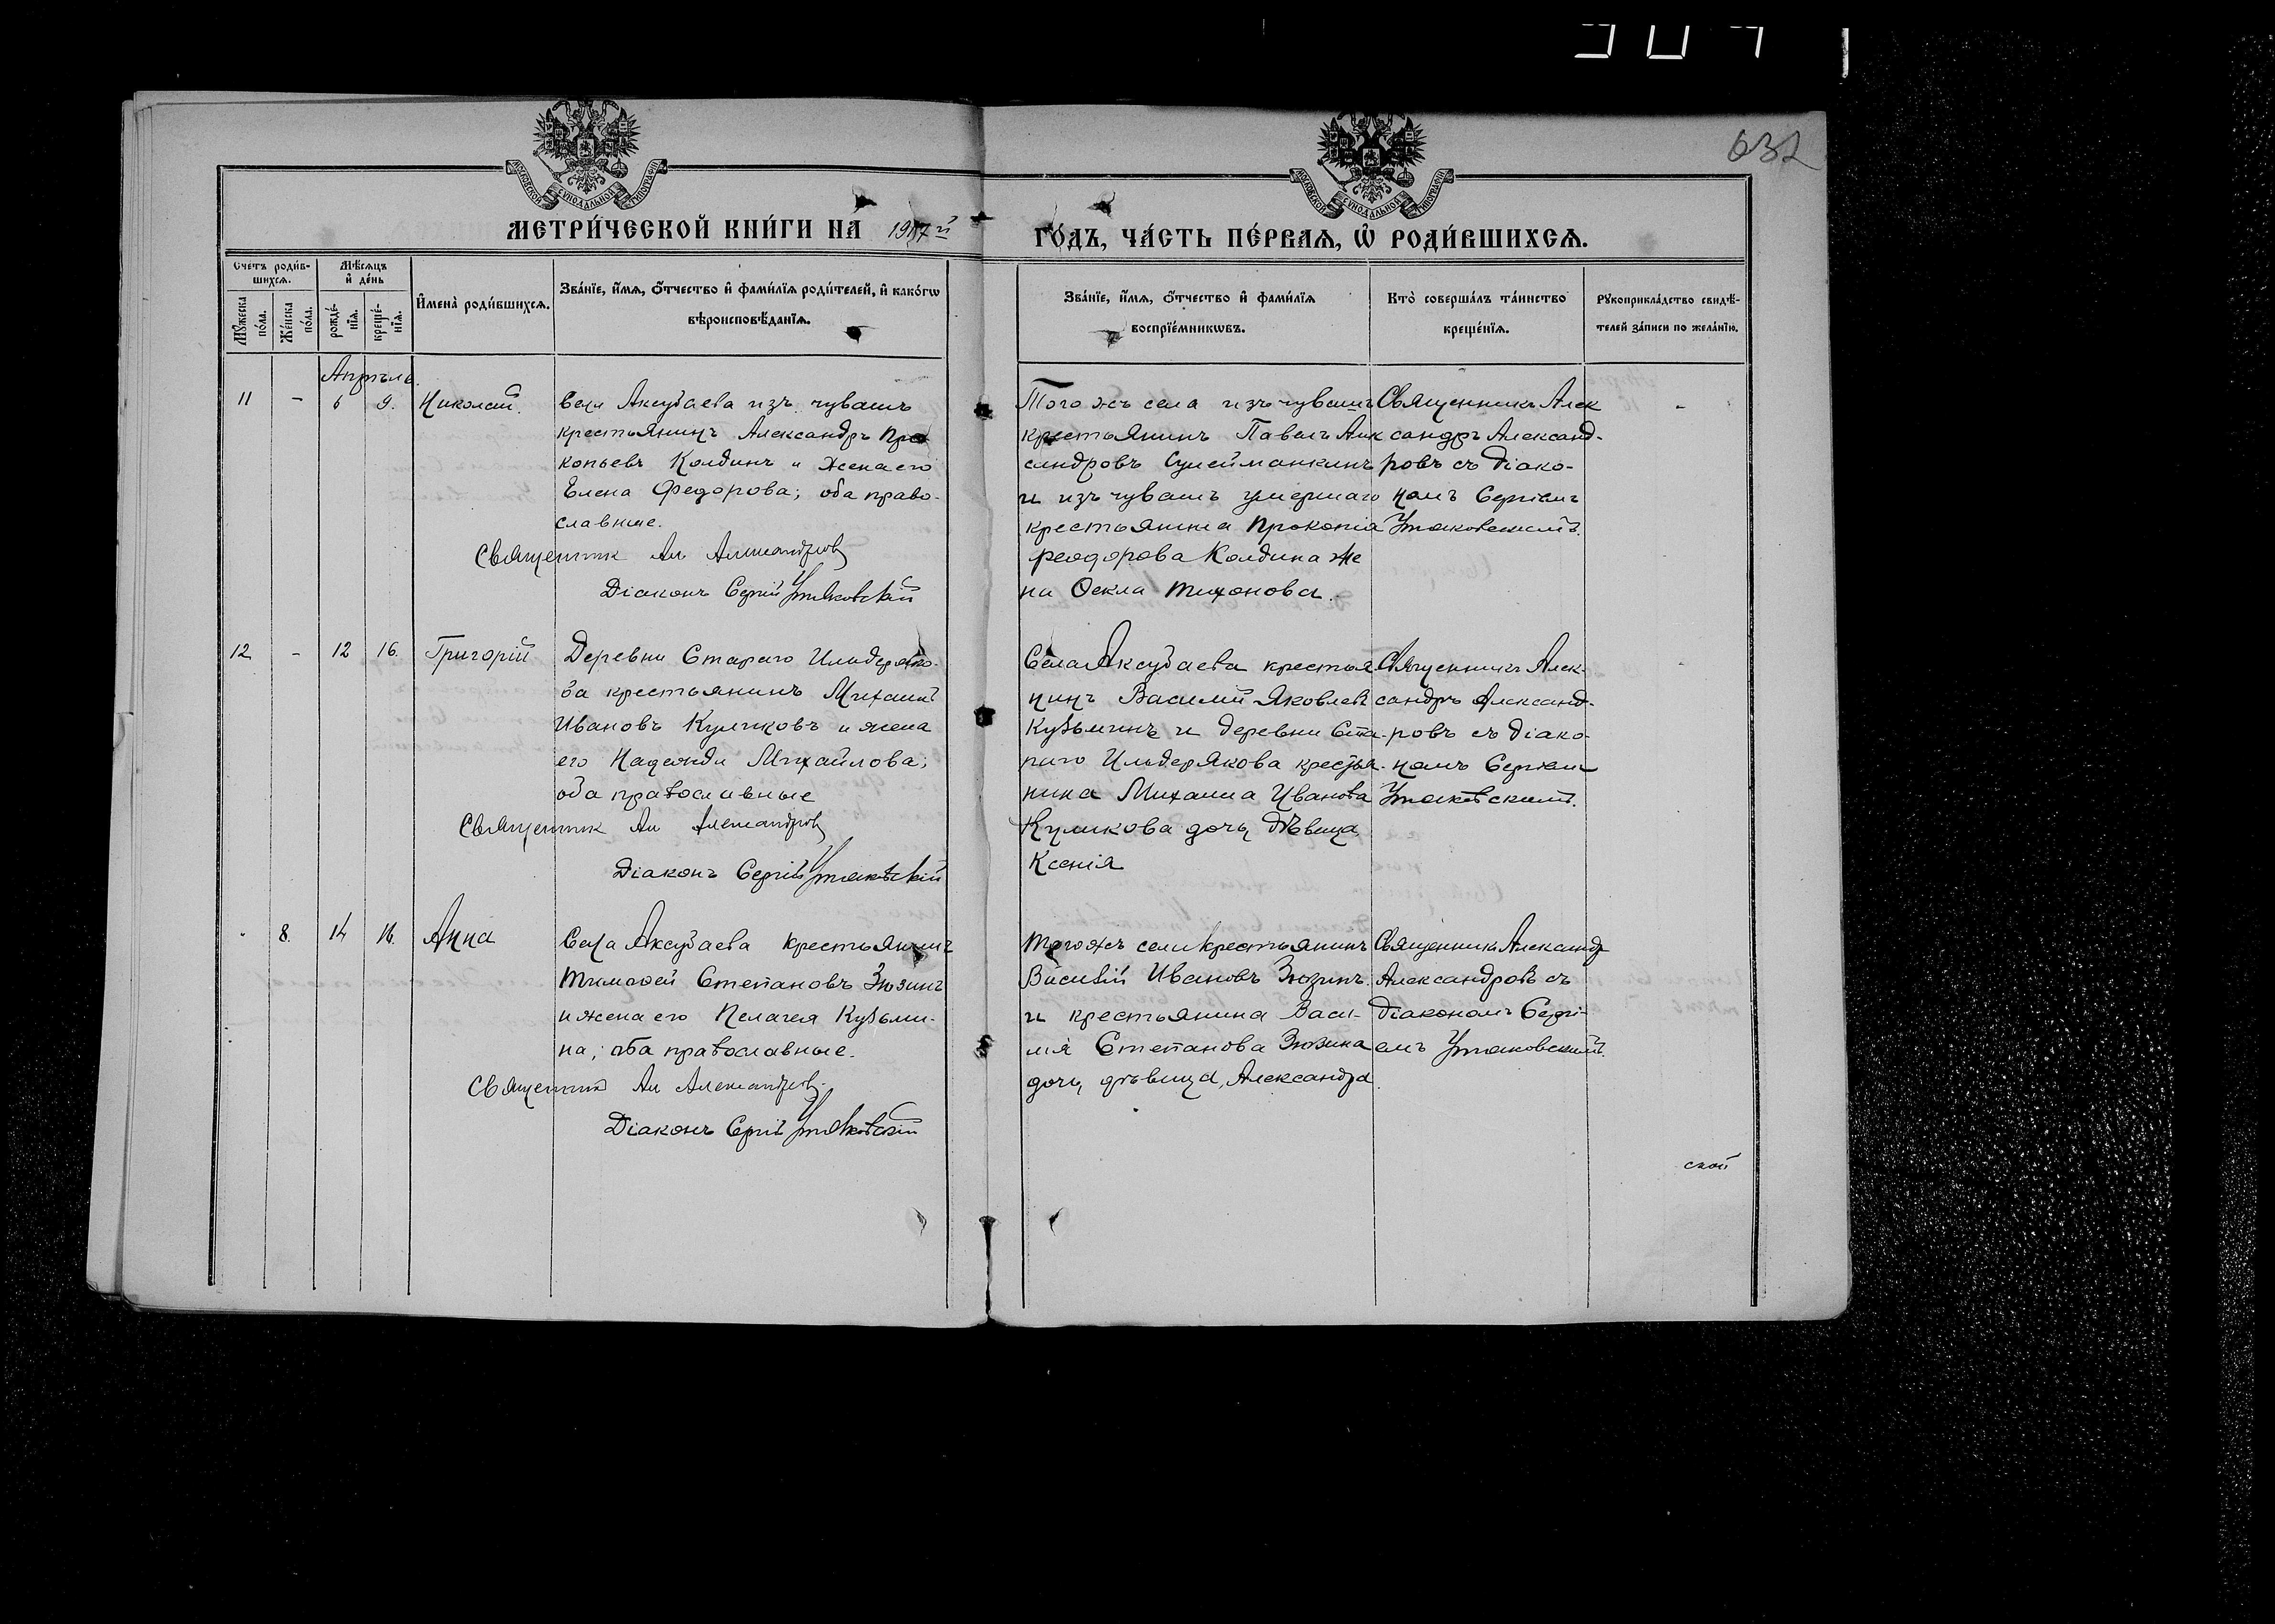 632
МОСКОВСКОЙ СѴНОДАЛЬНОЙ ТИПОГРАФІИ
МОСКОВСКОЙ СѴНОДАЛЬНОЙ ТИПОГРАФІИ
МЕТРИ́ЧЕСКОЙ КНИ́ГИ НА̀ 1917 й
ГО́ДЪ, ЧА́СТЬ ПЕ́РВАѦ, Ѡ҆ РОДИ́ВШИХСѦ.
Счетъ роди́в-
шихсѧ.
Мѣсѧцъ
и҆ де́нь
Мꙋжеска
по́ла.
Же́нска
по́ла.
рожде́-
нїѧ.
креще́-
нїѧ.
И҆мена̀ роди́вшихсѧ.
Зва́нїе, и҆́мѧ, ѻ҆́тчество и҆ фами́лїѧ роди́телей, и҆ како́гѡ
вѣроисповѣ́данїѧ.
Зва́нїе, и҆́мѧ, ѻ҆́тчество и҆ фами́лїѧ
воспрїе́мникѡвъ.
Кто̀ соверша́лъ та́инство
креще́нїѧ.
Рꙋкоприкла́дство свидѣ́-
телей за́писи по жела́нїю.
Апрѣль.
11 - 6 9. Николай.
Села Аксубаева изъ чувашъ
крестьянинъ Александръ Про
копьевъ Колдинъ и жена его
Елена Федорова; оба право-
славные.
Священник Ал Александров
Діаконъ Сергій
Того жъ села изъ чувашъ
крестьянинъ Павелъ Алек
сандровъ Сулейманкинъ
и изъ чувашъ умершаго
крестьянина Прокопія
Феодорова Колдина же
на Ѳекла Тихонова.
Священникъ Алек
сандръ Александ-
ровъ съ діако-
номъ Сергіемъ
12 - 12 16. Григорій
Деревни Стараго Ильдеряко-
ва крестьянинъ Михаилъ
Ивановъ Куликовъ и жена
его Надежда Михайлова;
оба православные
Священник Ал Александров
Діаконъ Сергій
Села Аксубаева крестья
нинъ Василій Яковлевъ
Кузьминъ и деревни Ста-
раго Ильдерякова крестья-
нина Михаила Иванова
Куликова дочь, дѣвица
Ксенія
Священникъ Алек-
сандръ Александ-
ровъ съ діако-
номъ Сергіемъ
- 8. 14 16. Анна
Села Аксубаева крестьянинъ
Тимофей Степановъ Зюзинъ
и жена его Пелагея Кузьми-
на; оба православные.
Священник Ал Александров
Діаконъ Сергій
Того жъ села крестьянинъ
Василій Ивановъ Зюзинъ
и крестьянина Васи-
лія Степанова Зюзина
дочь, дѣвица, Александра.
Священникъ Александръ
Александровъ съ
діакономъ Сергі-
емъ
ской